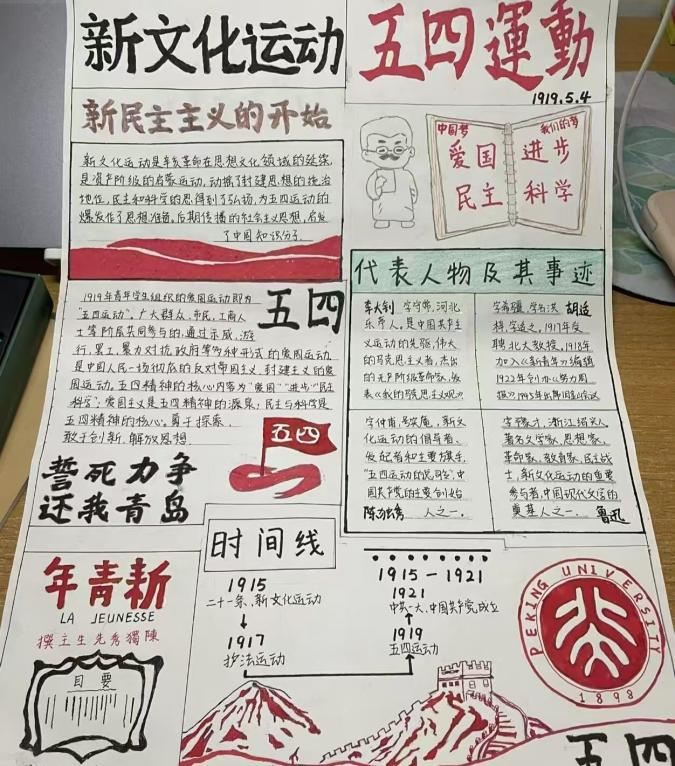 新文化运动
五四運動
1919.5.4
新民主主义的开始
新文化运动是辛亥革命在思想文化领域的延续,
是资产阶级的启蒙运动,动摇了封建思想的统治
地位,民主和科学的思得到了弘扬,为五四运动的
爆发作了思想准备。后期传播的社会主义思想,启发
了中国知识分子.
中国梦
我们的梦
爱国
进步
民主
科学
代表人物及其事迹
李大钊 字守常,河北
乐亭人,是中国共产主
义运动的先驱,伟大
的马克思主义者,杰出
的无产阶级革命家,发
表《我的马克思主义观》
胡适
聘北大教授,1918年
加入《新青年》编辑
1922年创办《努力周
报》
字仲甫,号实庵,新文
化运动的倡导者、
发起者和主要旗手,
"五四运动的总司令",中
国共产党的主要创始
陈独秀 人之一.
字豫才,浙江绍兴人
著名文学家,思想家,
革命家,教育家,民主战
士,新文化运动的重要
参与者,中国现代文学的
奠基人之一. 鲁迅
五四
1919年青年学生组织的爱国运动即为
"五四运动",广大群众、市民、工商人
士等阶层共同参与的,通过示威,游
行,罢工,暴力对抗政府等多种形式的爱国运动
是中国人民一场彻底的反对帝国主义,封建主义的爱
国运动。五四精神的核心内容为"爱国""进步""民主
科学";爱国主义是五四精神的源泉;民主与科学是
五四精神的核心;勇于探索、
敢于创新、解放思想
五四
誓死力争
还我青岛
时间线
1915
二十一条、新文化运动
1917
护法运动
1915-1921
1921
中共一大,中国共产党成立
1919
五四运动
年青新
LA JEUNESSE
撰主生先秀獨陳
目要
PEKING UNIVERSITY
1898
五四